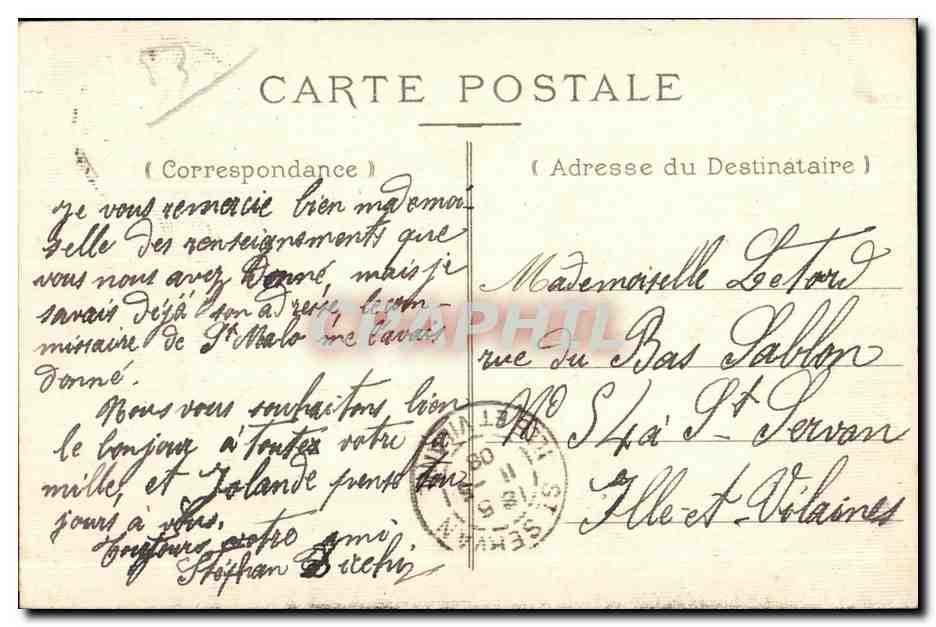 CARTE POSTALE
( Correspondance )
( Adresse du Destinataire )
Je vous remercie bien mademoi-
selle des renseignements que
vous nous avez donné, mais je
savais déjà son adresse, le com-
missaire de St Malo me l'avais
donné.
Nous vous souhaitons bien
le bonjour à toutes votre fa
mille, et Jolande pense tou
jours à vous.
Toujours votre ami
Stéphan
Mademoiselle Letord
rue du Bas Sablon
No 54 à St Servan
Ille-et-Vilaines
ST SERVAN
ILLE ET VILAINE
CPAPHIL